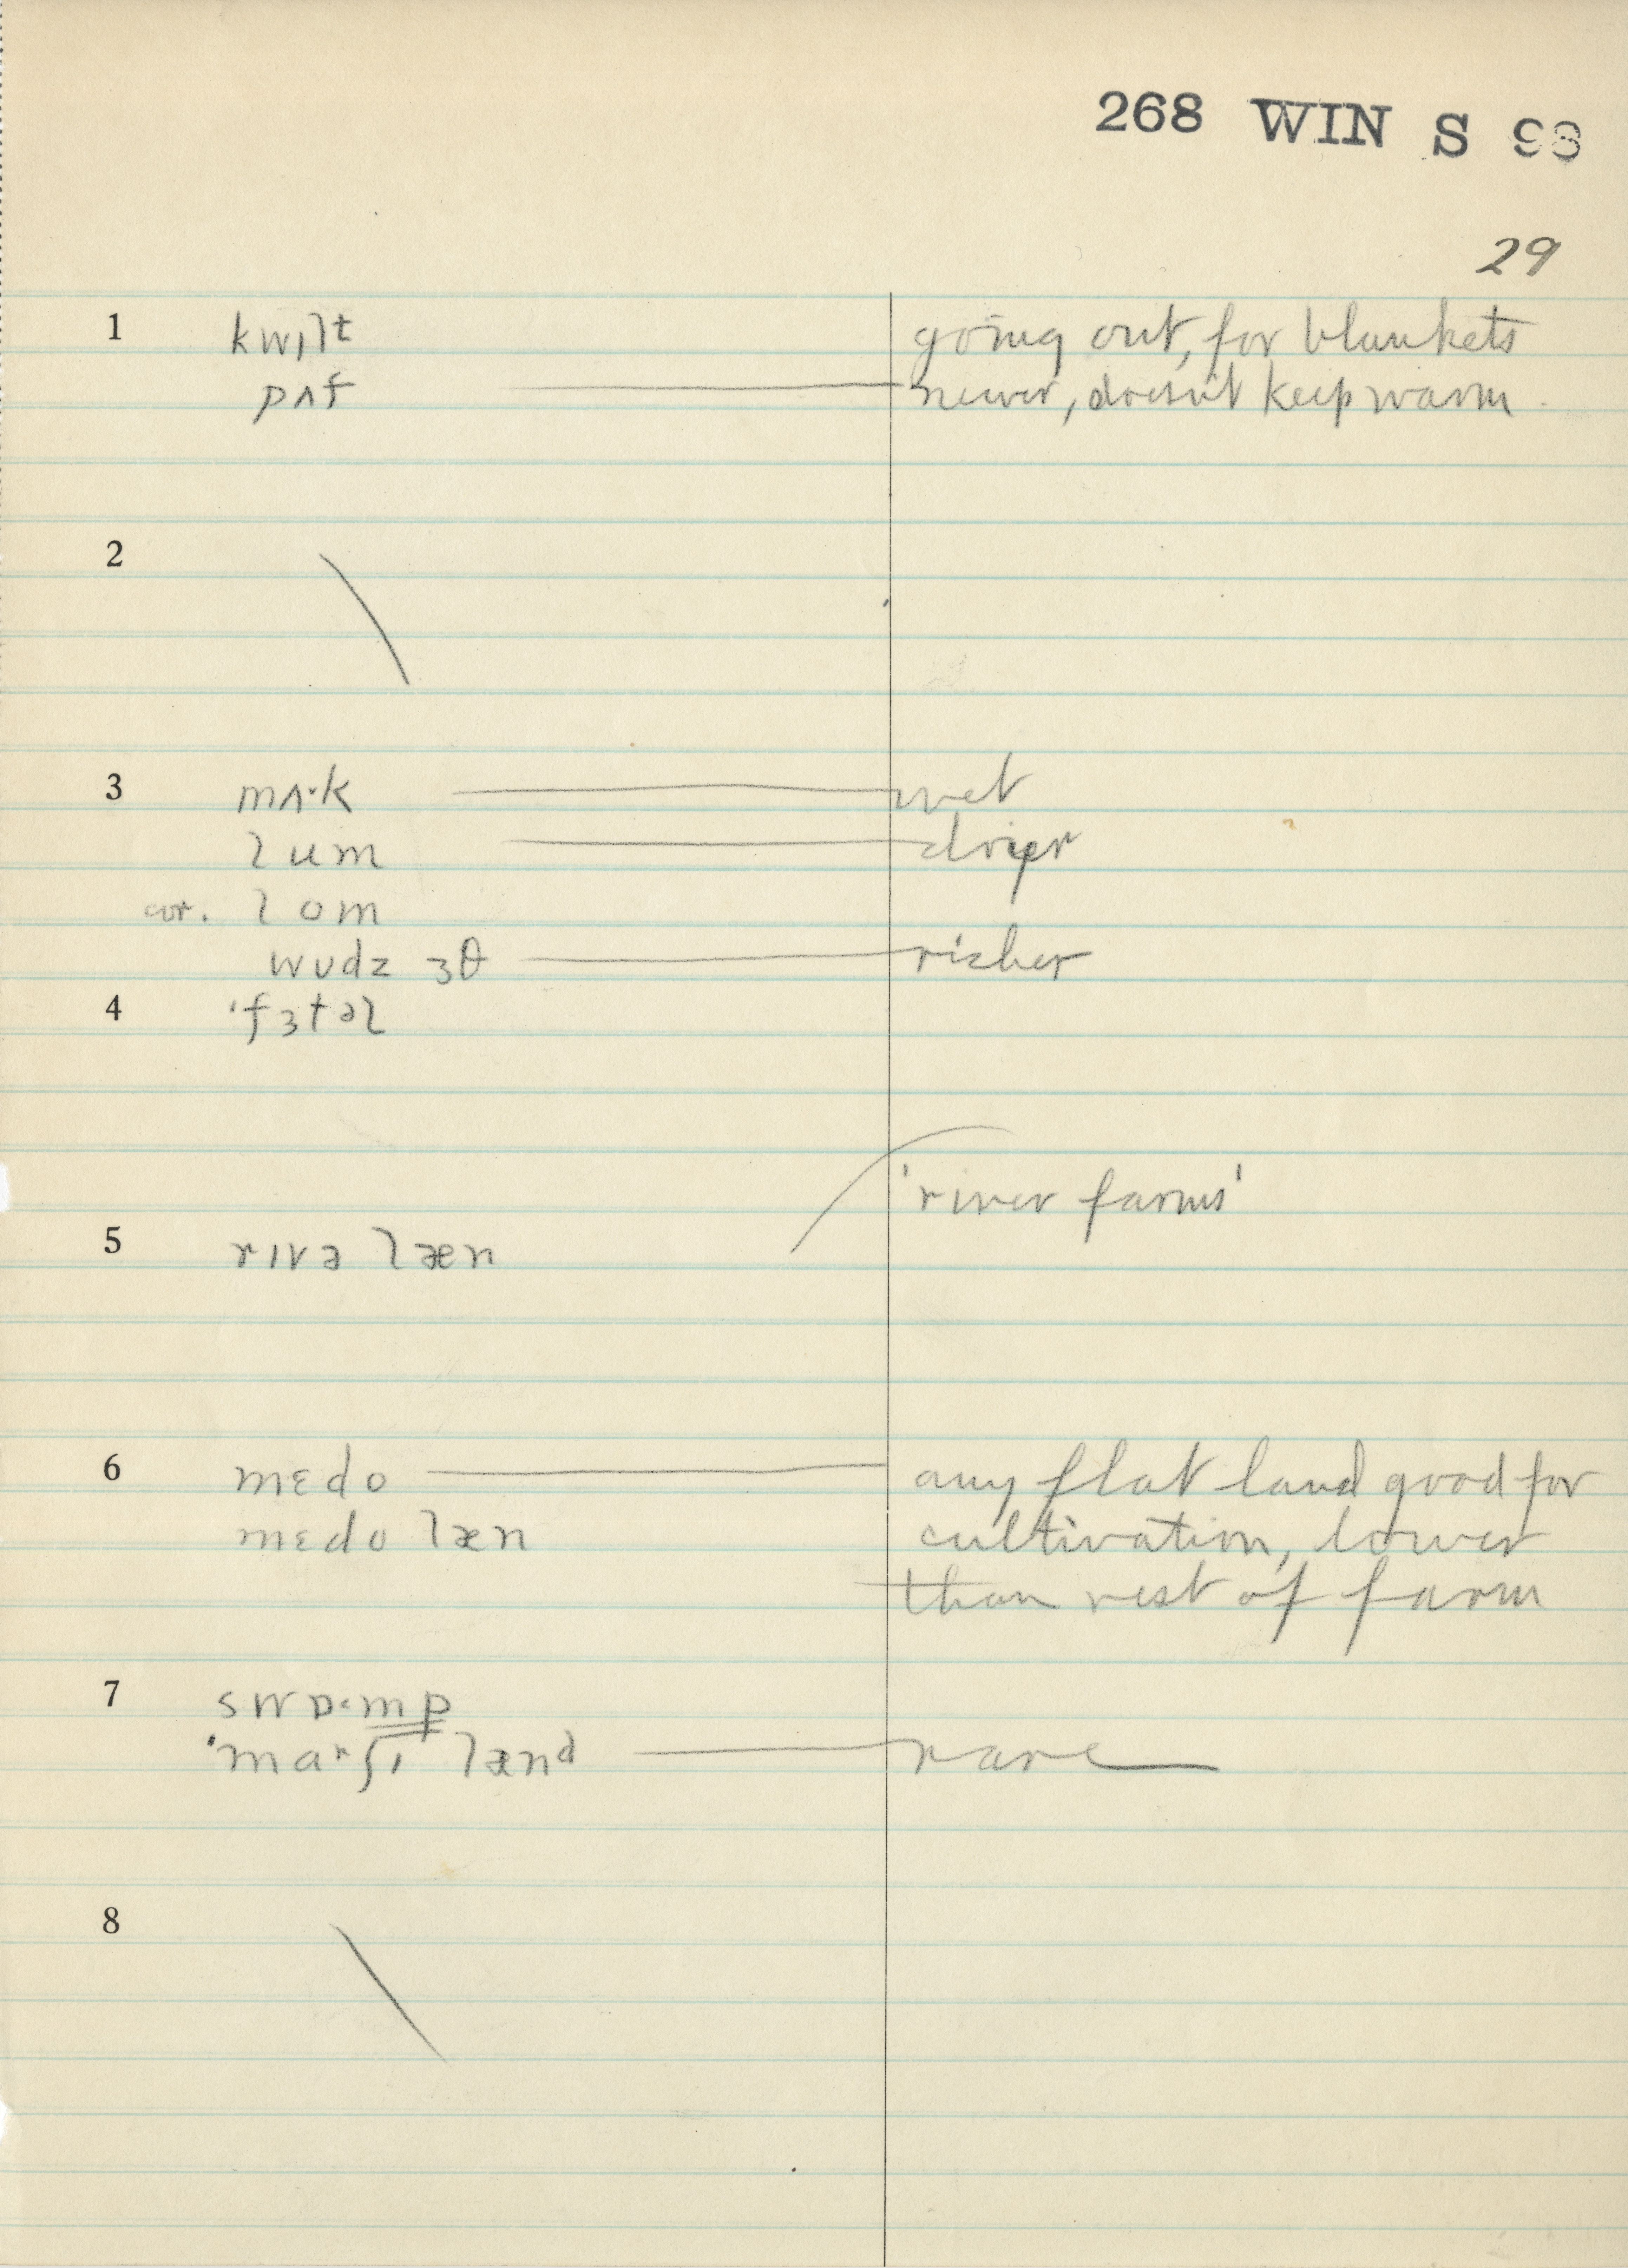 268 WIN S 93
29
1 kwɪlt going out, for blankets
pʌf newer, doesn't keep warm
2
3 mʌ·k wet
lum drier
cor. lom
wudz ɜθ richer
4 ˈfɜtəl
'river farms'
5 rɪvə læn
6 mɛdo any flat land good for
mɛdo læn cultivation, lower
than rest of farm
7 swɒ·mp
ˈmaʳʃɪ lænᵈ rare
8